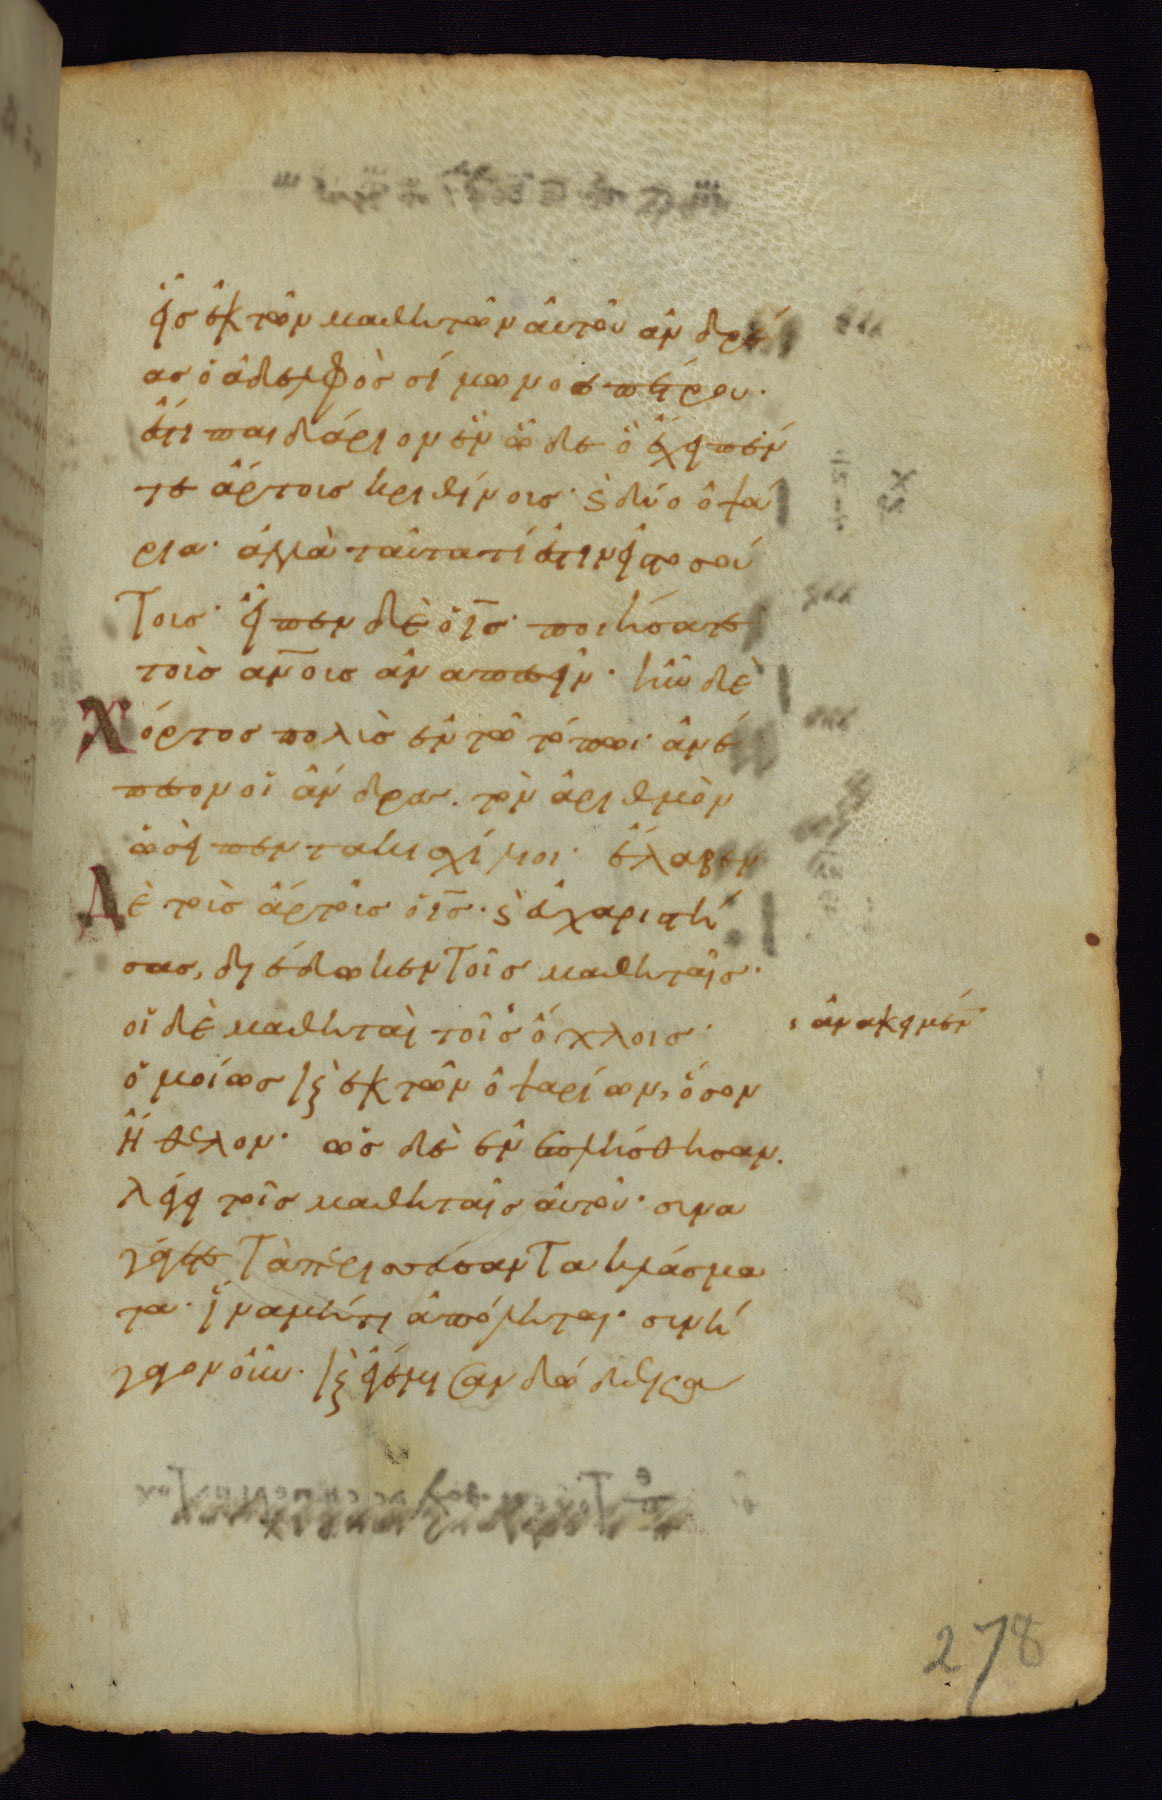 εἷς ἐκ τῶν μαθητῶν αὐτοῦ ἀνδρέ
ας ὁ ἀδελφὸς σίμωνος πέτρου·
ἔστι παιδάριον ἓν ὧδε ὃ ἔχει πέν
τε ἄρτους κριθίνους· ϛ δύο ὀψά
ρια· ἀλλὰ ταῦτα τί ἐστιν εἰς τοσού
τους· εἶπεν δὲ ὁ ις̅· ποιήσατε
τοὺς αν̅ους ἀναπεσεῖν· ἦν δὲ
Χόρτος πολὺς ἐν τῶ τόπωι· ἀνέ
πεσον οἱ ἄνδρες· τὸν ἀριθμὸν
ὡσεὶ πεντακισχίλιοι· ἔλαβεν
Δὲ τοὺς ἄρτους ὁ ις̅· ϛ εὐχαριστή
σας, διέδωκεν τοῖς μαθηταῖς·
οἱ δὲ μαθηταὶ τοῖς ὄχλοις·
ἀνακειμέν
ὁμοίως κ̀ ἐκ τῶν ὀψαρίων, ὅσον
ἤθελον· ὡς δὲ ἐνεπλήσθησαν.
λέγει τοῖς μαθηταῖς αὐτοῦ· συνα
γάγετε τὰ περισσεύσαντα κλάσμα
τα· ἵνα μήτι ἀπόληται· συνή
γαγον οὖν· κ̀ ἐγέμισαν δώδεκα
278